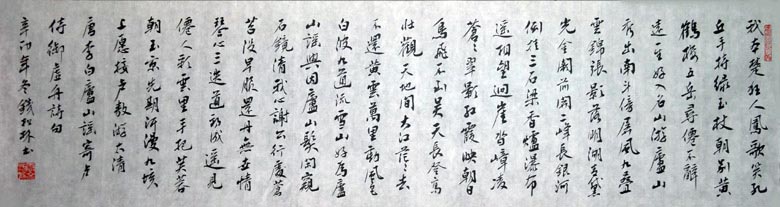 我本楚狂人鳳歌笑孔
丘手持緑玉杖朝别黄
鶴樓五岳尋僊不辭
遠一生好入名山游廬山
秀出南斗傍屏風九叠
雲錦張影落明湖青黛
光金闕前開二峰長銀河
倒挂三石梁香爐瀑布
遥相望迴崖沓嶂凌
蒼蒼翠影紅霞映朝日
鳥飛不到吴天長登高
壯觀天地間大江茫茫去
不還黄雲萬里動風色
白波九道流雪山好爲廬
山謡興因廬山發閑窺
石鏡清我心謝公行處蒼
苔没早服還丹無世情
琴心三迭道初成遥見
僊人彩雲里手把芙蓉
朝玉京先期汗漫九垓
上願接盧敖游太清
唐李白廬山謡寄盧
侍御虚舟詩句
辛卯年冬書